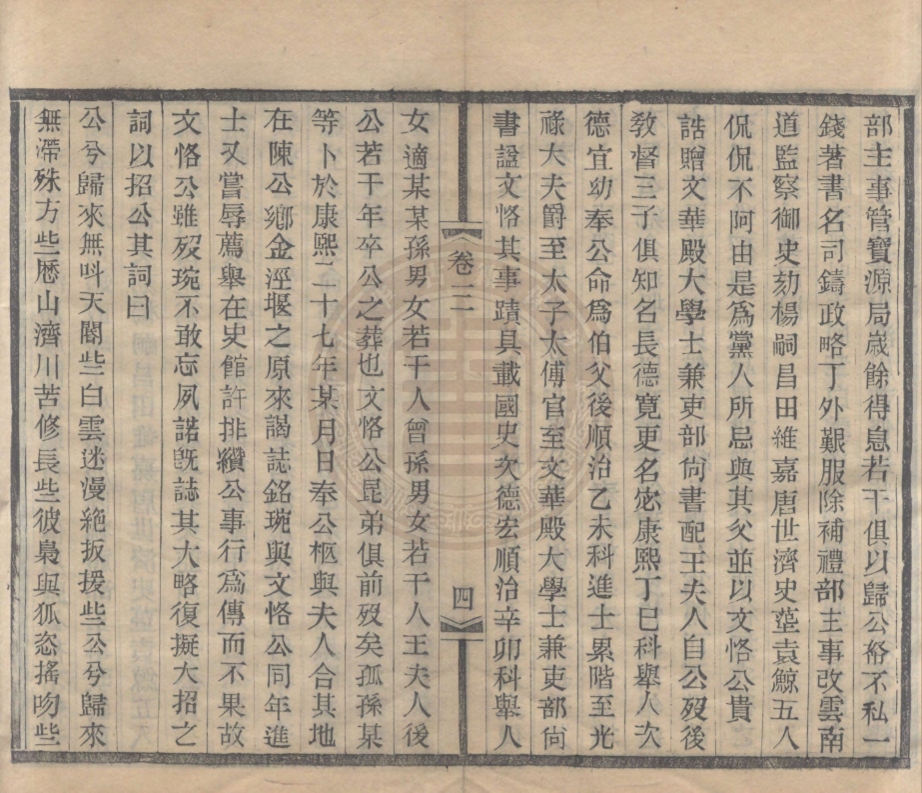 部主事管寶源局嵗餘得息若干俱以歸公帑不私一
錢著書名司鑄政略丁外艱服除補禮部主事改雲南
道監察御史劾楊嗣昌田維嘉唐世濟史𡎊袁鯨五人
侃侃不阿由是爲黨人所忌與其父並以文恪公貴
誥贈文華殿大學士兼吏部尙書配王夫人自公歿後
敎督三子俱知名長德寛更名宓康熙丁巳科舉人次
德宜幼奉公命爲伯父後順治乙未科進士累階至光
祿大夫爵至太子太傅官至文華殿大學士兼吏部尙
書諡文恪其事蹟具載國史次德宏順治辛卯科舉人
卷二
四
女適某某孫男女若干人曾孫男女若干人王夫人後
公若干年卒公之葬也文恪公昆弟俱前歿矣孤孫某
等卜於康熙二十七年某月日奉公柩與夫人合其地
在陳公鄉金涇堰之原來謁誌銘琬與文恪公同年進
士又嘗辱薦舉在史館許排纘公事行爲傳而不果故
文恪公雖歿琬不敢忘夙諾旣誌其大略復擬大招之
詞以招公其詞曰
公兮歸來無呌天閽些白雲迷漫絶扳援些公兮歸來
無滯殊方些歴山濟川苦修長些彼梟與狐恣搖吻些